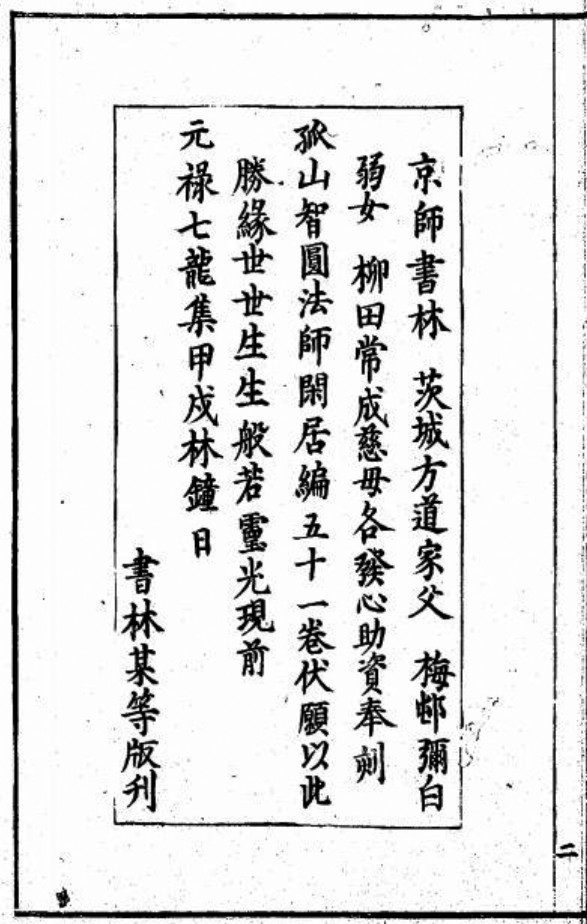 京師書林　茨城方道家父　梅邨彌白
弱女　柳田常成慈母各發心助資奉刻
孤山智圓法師閑居編五十一卷伏願以此
勝緣世世生生般若靈光現前
元祿七龍集甲戌林鐘日
書林某等版刊
二